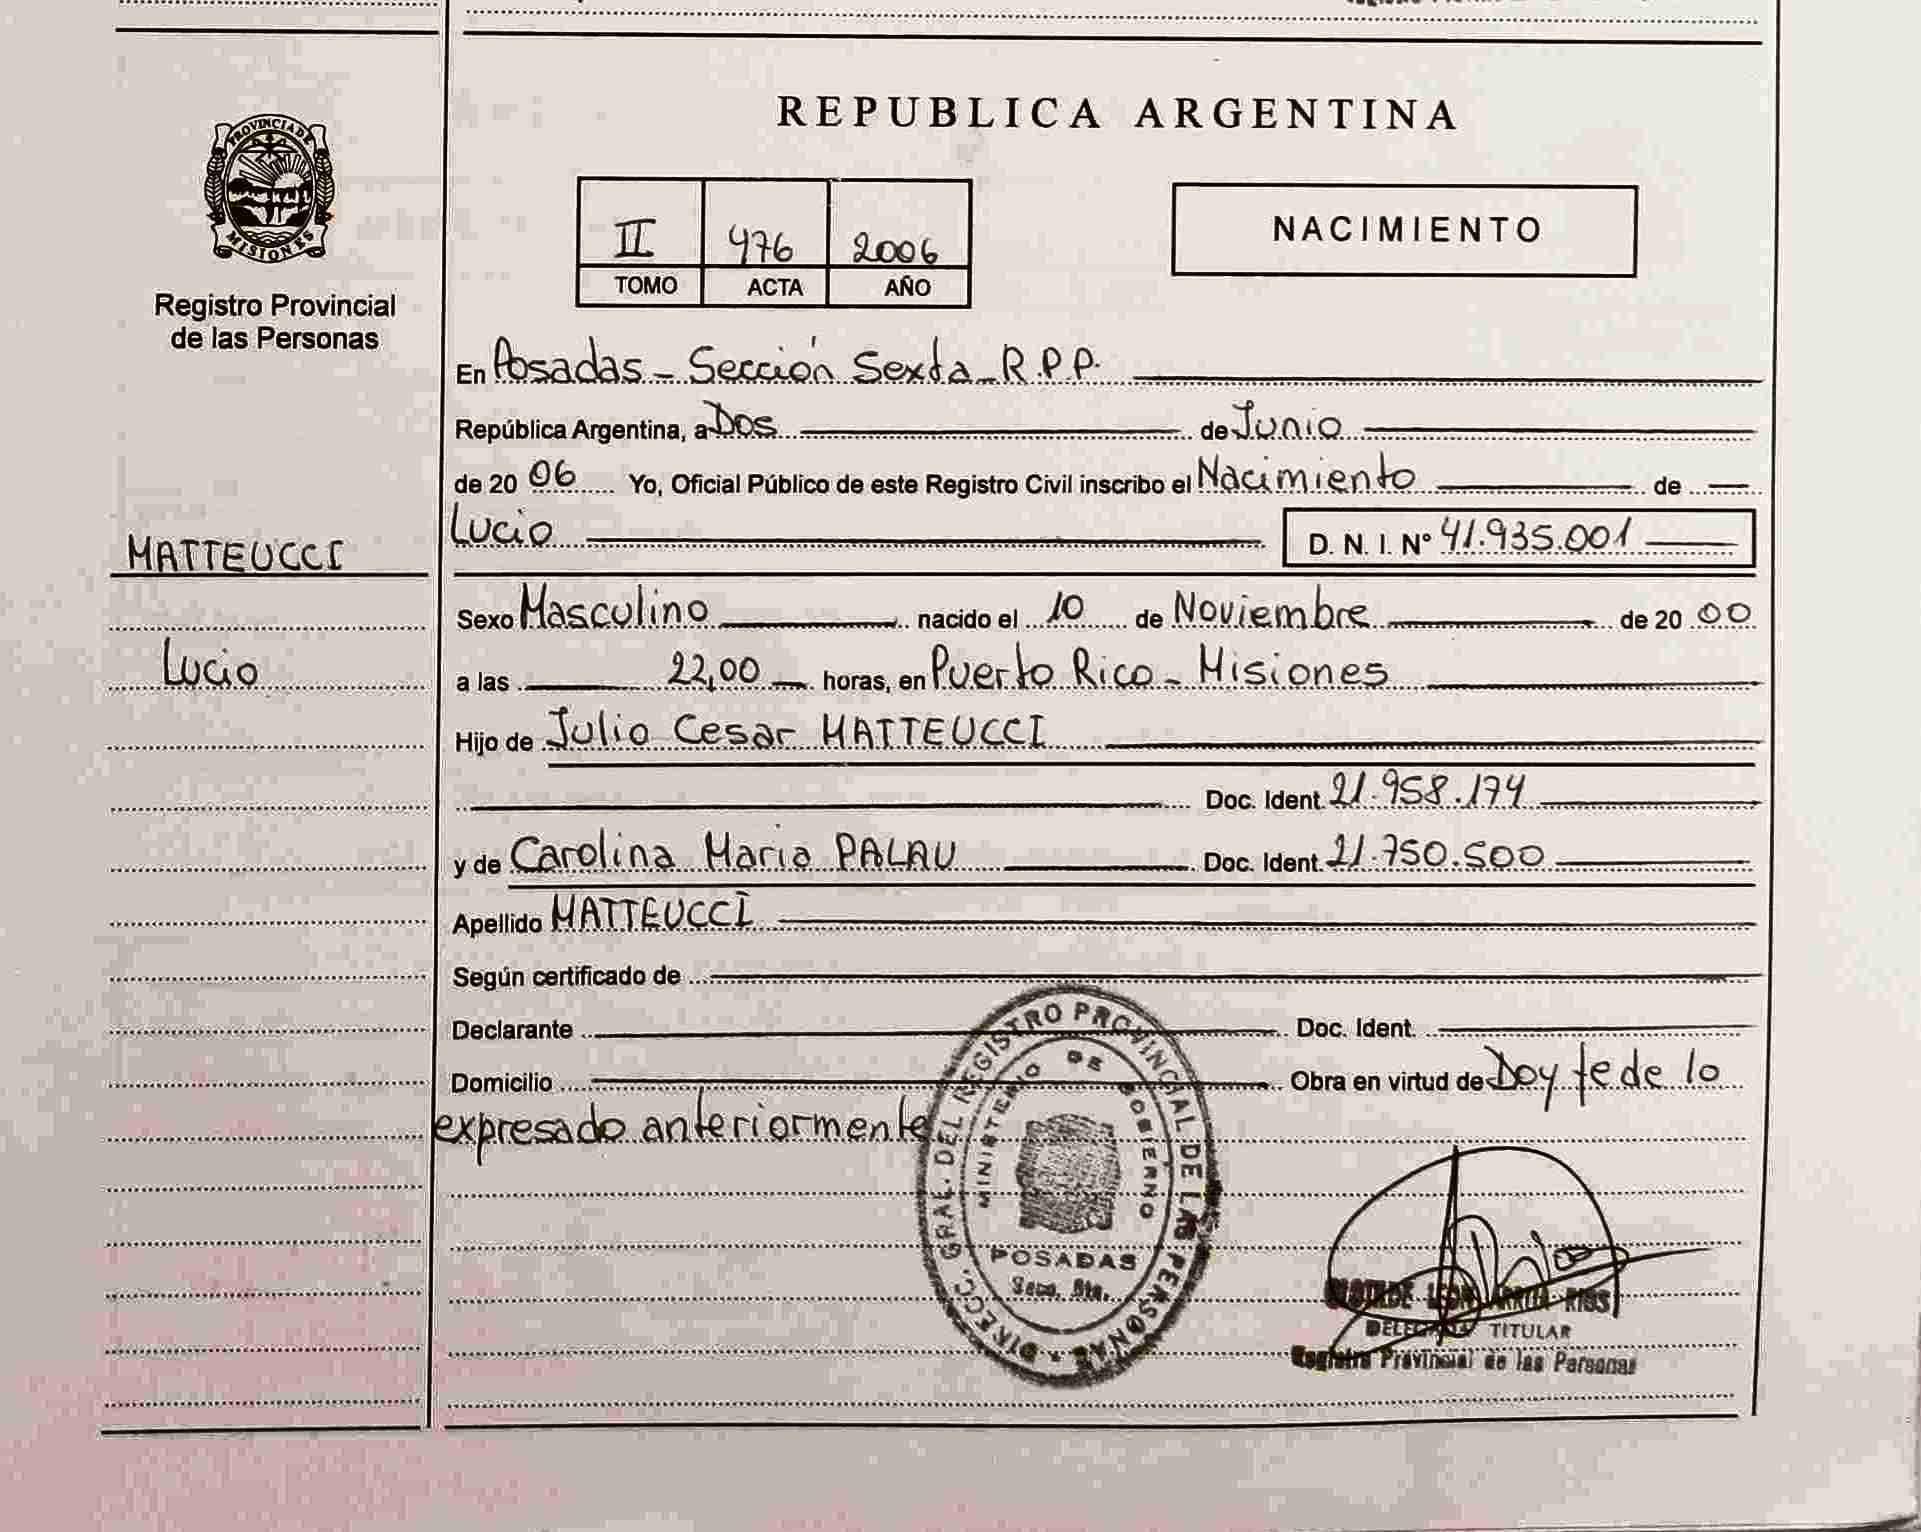 REPUBLICA ARGENTINA
PROVINCIA DE
MISIONES
Registro Provincial
de las Personas
II 476 2006
TOMO ACTA AÑO
NACIMIENTO
En Posadas - Sección Sexta - R.P.P.
República Argentina, a Dos de Junio
de 20 06 Yo, Oficial Público de este Registro Civil inscribo el Nacimiento de
MATTEUCCI
Lucio
Lucio D. N. I. Nº 41.935.001
Sexo Masculino nacido el 10 de Noviembre de 20 00
a las 22,00 horas, en Puerto Rico - Misiones
Hijo de Julio Cesar MATTEUCCI
Doc. Ident. 21.958.174
y de Carolina Maria PALAU Doc. Ident. 21.750.500
Apellido MATTEUCCI
Según certificado de
Declarante Doc. Ident.
Domicilio Obra en virtud de Doy fe de lo
expresado anteriormente
DIRECC. GRAL. DEL REGISTRO PROVINCIAL DE LAS PERSONAS
MINISTERIO DE GOBIERNO
POSADAS
Secc. 6ta.
DELEGADA TITULAR
Registro Provincial de las Personas